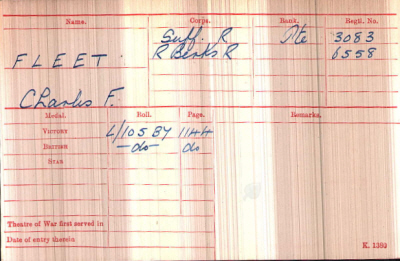 Name. Corps. Rank. Regtl. No.
Suff. R Pte 3083
FLEET. R Berks R 6558
Charles F.
Medal. Roll. Page. Remarks.
VICTORY L/105 B4 1144
BRITISH -do- do
STAR
Theatre of War first served in
Date of entry therein
K. 1380